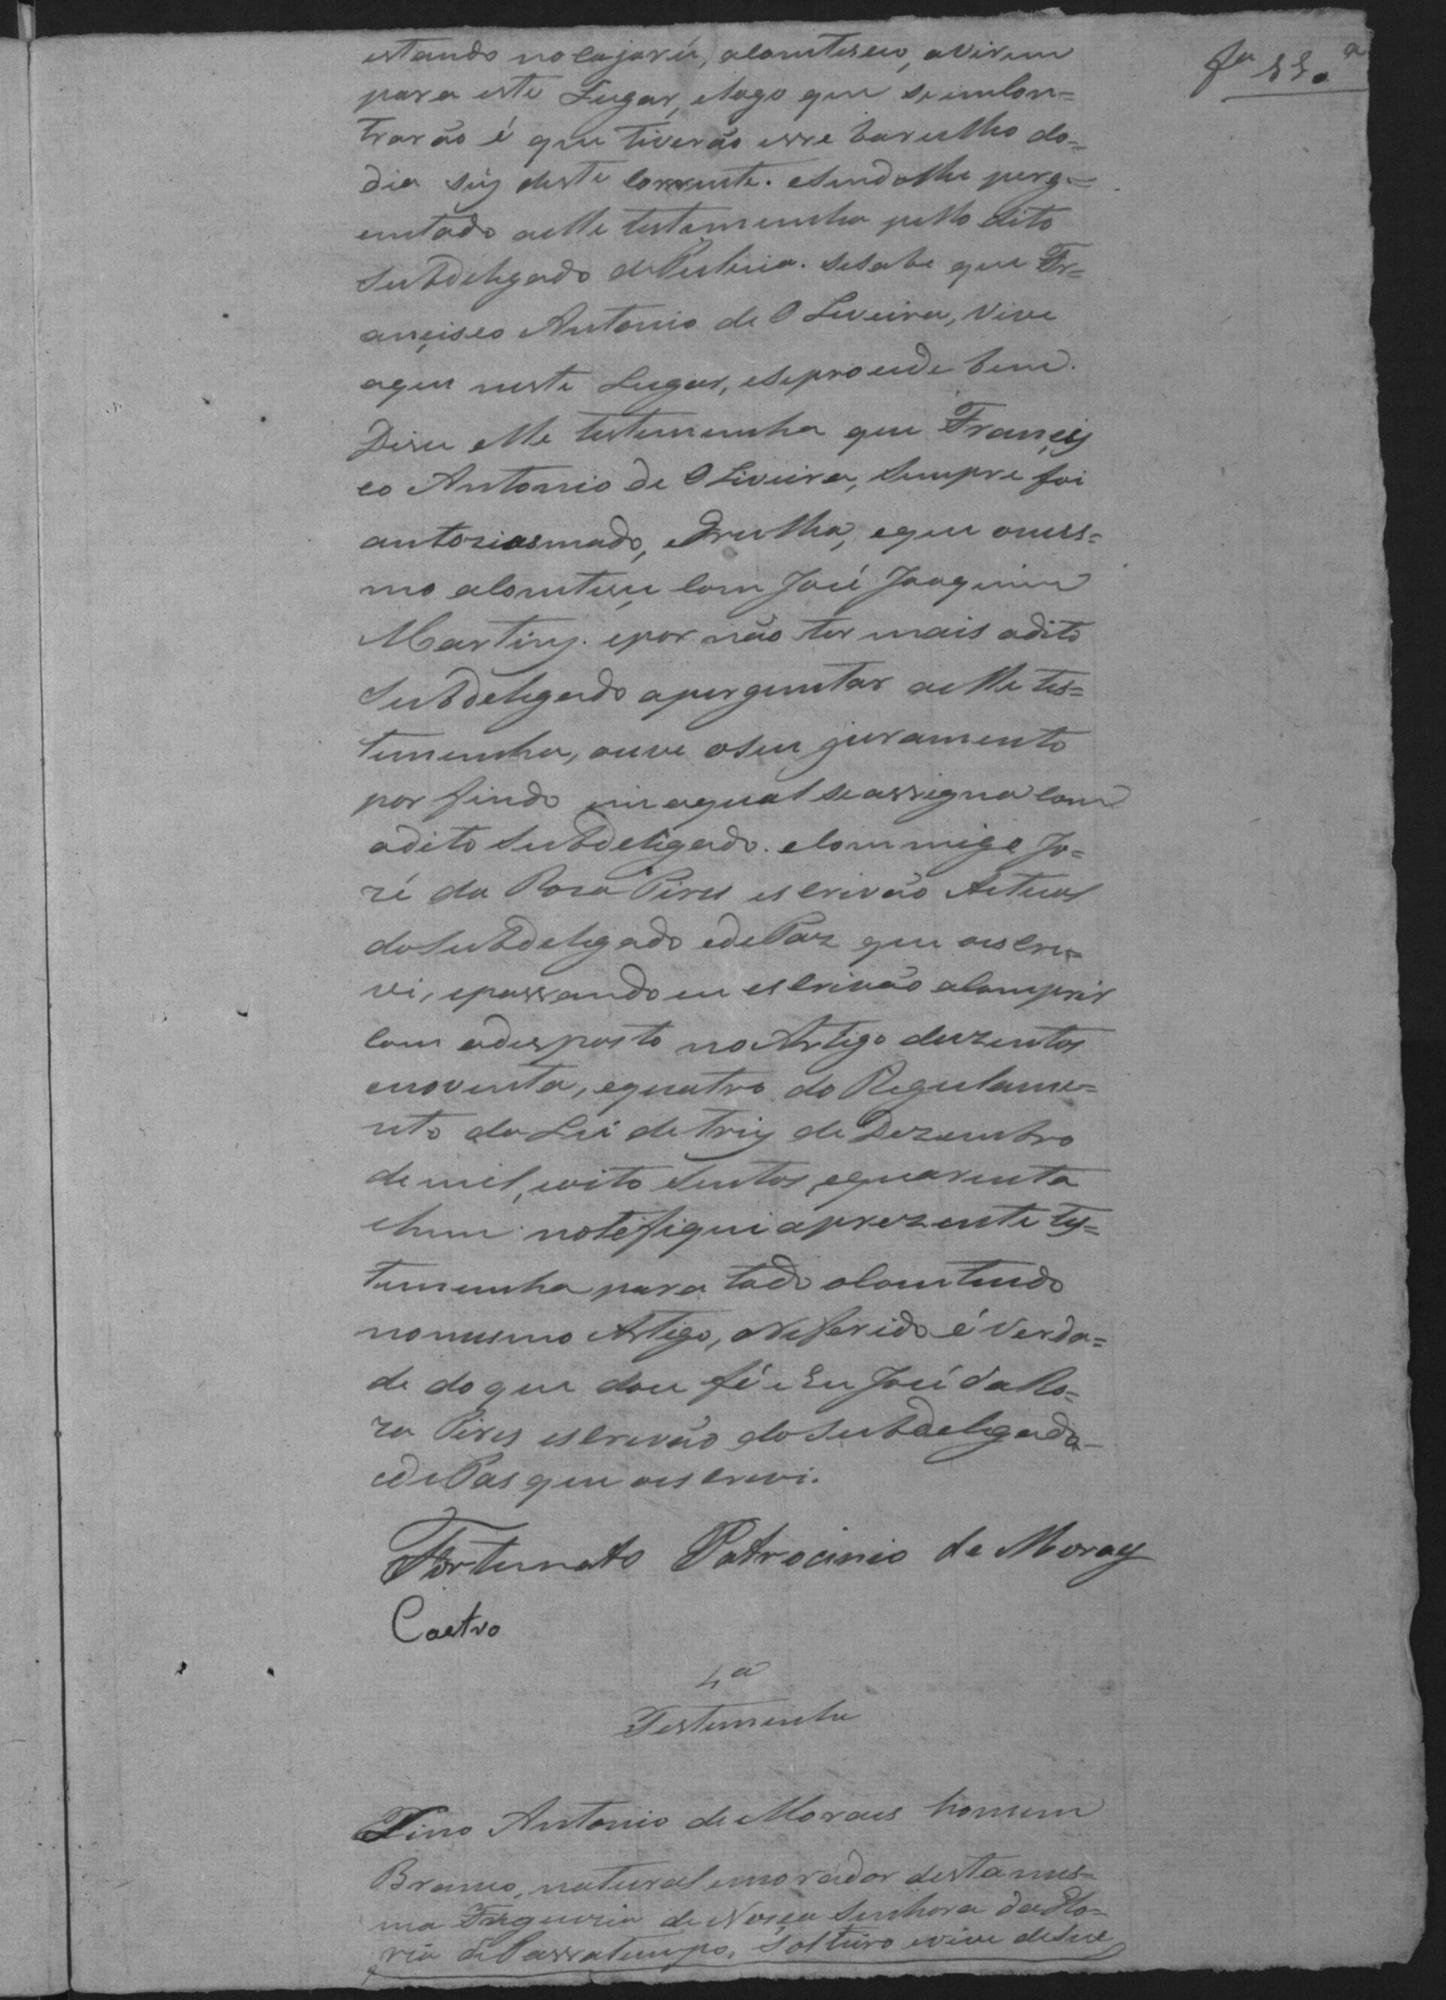 estando no Cajarú, aContesceu, avirem
para este Lugar, elogo que seimCon=
trarão é que tiverão esse barulho do=
dia seiz deste Corrente. esendolhe perg=
entado aelle testemunha pello dito
Subdelegado dePulicia. sesabe que Fr=
ancisco Antonio de OLiveira, vive
aqui neste Lugar, eseprocede bem.
Dice elle testemunha que Francis
co Antonio de OLiveira, sempre foi
antoziasmado, eBrulha, eque omes=
mo aContesse Com José Joaquim
Martinz. epor não ter mais odito
Subdelegado aperguntar aelle tes=
temunha, ouve oseu juramento
por findo emaqual seassigna Com
odito Subdelegado. eCommigo Jo=
zé da Roza Pires esCrivão Actual
doSubdelegado edePaz que oesCre=
vi, epassando eu esCrivão aComprir
Com odesposto noArtigo duzentos
enoventa, equatro do Regulame=
nto da Lei de Triz de Dezembro
de mil, oito sentos, equarenta
ehum notefiquei aprezente tes=
temunha para todo oContendo
nomesmo Artigo, oReferido é verda=
de do que dou fé eEu José da Ro=
za Pires esCrivão do Subdelegado
edePas que oesCrevi.
Fortunato Patrocinio de Moraes
Castro
4ª
Testemunha
Lino Antonio de Moraes homem
Branco, natural emorador desta mes=
ma Freguezia de Nossa Senhora da Glo=
ria de Passatempo, Solteiro evive deSue